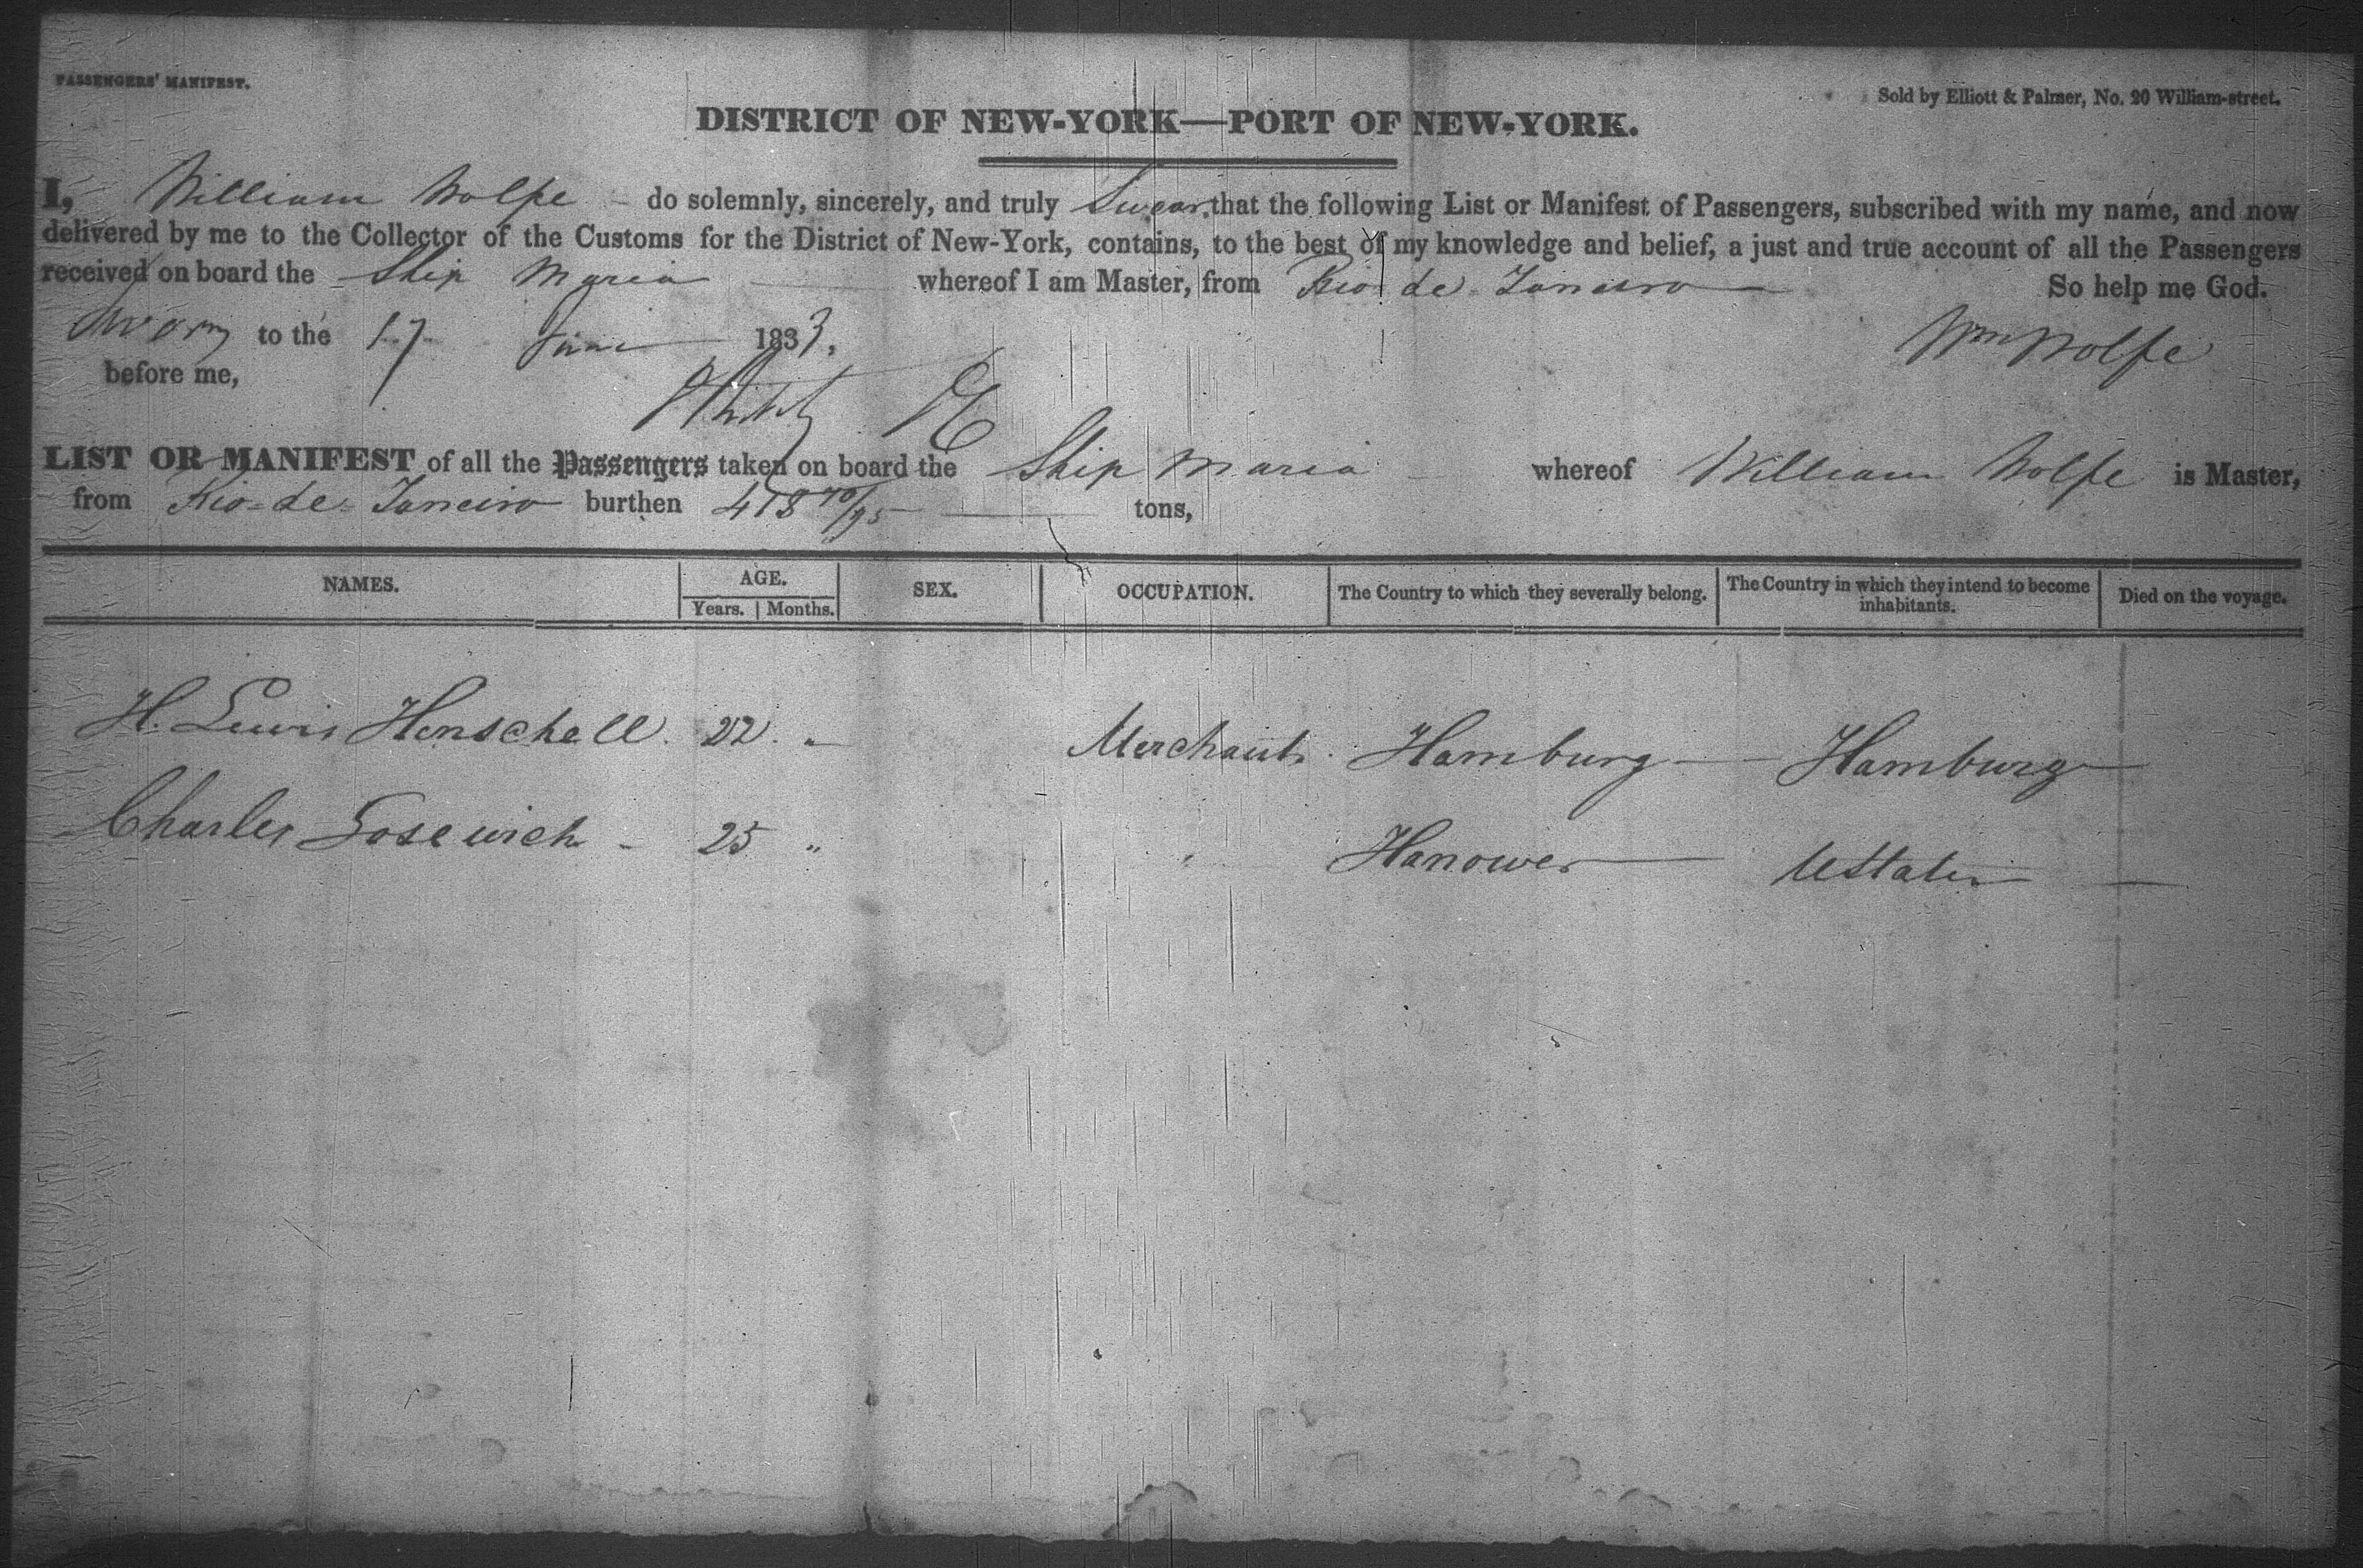 PASSENGERS' MANIFEST.
Sold by Elliott & Palmer, No. 20 William-street.
DISTRICT OF NEW-YORK—PORT OF NEW-YORK.
I, William Wolfe do solemnly, sincerely, and truly Swear that the following List or Manifest of Passengers, subscribed with my name, and now
delivered by me to the Collector of the Customs for the District of New-York, contains, to the best of my knowledge and belief, a just and true account of all the Passengers
received on board the Ship Maria whereof I am Master, from Rio de Janeiro So help me God.
Sworn to the 17 June 1833, Wm Wolfe
before me,
LIST OR MANIFEST of all the Passengers taken on board the Ship Maria whereof William Wolfe is Master,
from Rio-de-Janeiro burthen 418 70/95 tons,
NAMES. AGE. Years. Months. SEX. OCCUPATION. The Country to which they severally belong. The Country in which they intend to become inhabitants. Died on the voyage.
H. Lewis Henschell. 22. " Merchant. Hamburg — Hamburg —
Charles Losewich - 25 " " Hanower — UStates —